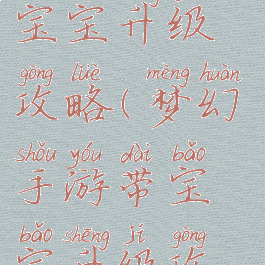 宝宝升级
gōng lüè mèng huàn
攻略(梦幻
shǒu yóu dài bǎo
手游带宝
bǎo shēng jí gōng
宝升级攻